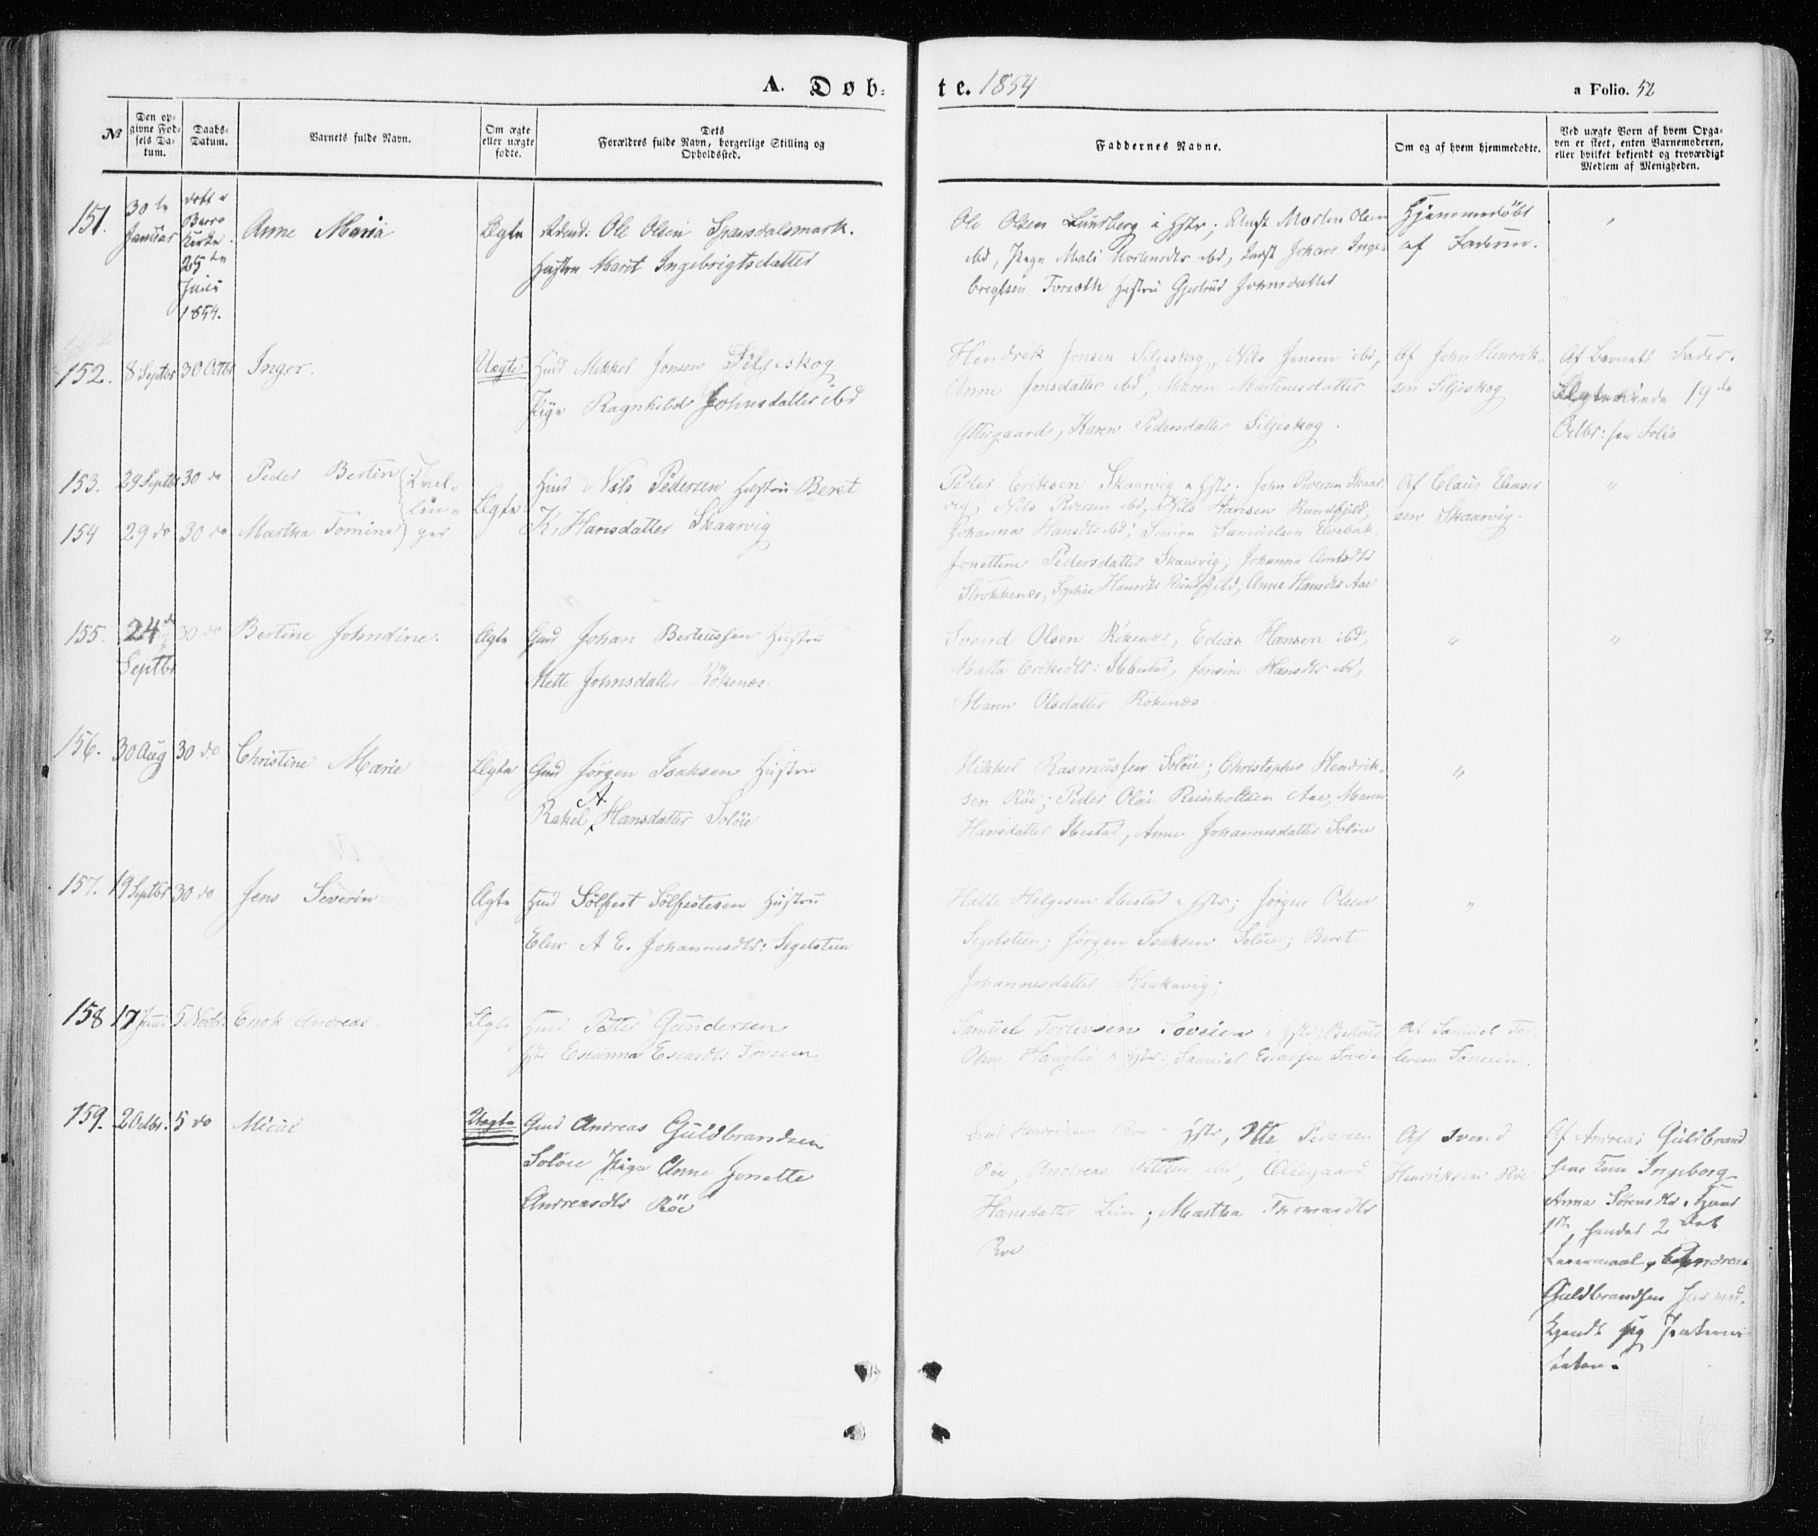 A. Døb-
te. 1854
a Folio. 52
№
Den op-
givne Fød-
sels Da-
tum.
Daabs-
Datum.
Barnets fulde Navn.
Om ægte
eller uægte
fødte.
Dets
Forældres fulde Navn, borgerlige Stilling og
Opholdssted.
Faddernes Navne.
Om og af hvem hjemmedøbte.
Ved uægte Børn af hvem Opga-
ven er skeet, enten Barnemoderen,
eller hvilket bekjendt og troværdigt
Medlem af Menigheden.
151.
30te
Januar
Kirke
25de
Juni
1854.
Anne Maria
Ægte
Ole Olsen Spansdalsmark.
Hustru Marit Ingebrigtsdatter
Ole Olsen Lundberg i Hstr; Morten Olsen
ibd, Pige Mali Mortensdtr ibd, Johan Inge-
bregtsen Forseth Hustru Gjertrud Johnsdatter
Hjemmedøbt
af Faderen.
152.
8 Septbr
30 Octbr
Inger.
Uægte
Mikkel Jonsen Siljeskog
Pige Ragnhild Johnsdatter ibd
Hendrik Jonsen Siljeskog, Nils Jonsen ibd,
Anne Jonsdatter ibd, Maren Martinusdatter
Ystergaard, Karen Pedersdatter Siljeskog.
Af John Henrik-
sen Siljeskog
Af Barnets Fader.
19de
Octbr: Folio
153.
29 Septbr
30 do
Peder Bertin
Tvil-
lin-
ger
Ægte
Nils Pedersen Hustru Beret
K. Hansdatter Skaarvig
154
29 do
30 do
Martha Tomine
Peder Eriksen Skaarvig Hstr. John Iversen Skaar
vig, Nils Iversen ibd, Nils Hansen Rundfjeld,
Johanna Hansdtr ibd; Simon Samuelsen Elvebak,
Jonettine Pedersdatter Skaarvig; Johanna Arntsdtr
Strokkenæs, Sophie Hansdtr Rundfjeld; Anne Hansdtr Aae
Af Claus Elenser
sen Skaarvig.
155.
24de
Septbr
30 do
Bertine Johndine.
Ægte
Gmd Johan Berteussen Hustru
Mette Johnsdatter Rökenæs.
Svend Olsen Rökenæs, Edias Hansen ibd,
Marta Eriksdtr: Ibestad, Jensine Hansdtr ibd,
Maren Olsdatter Rökenæs
156.
30 Aug
30 do
Christine Marie
Ægte
Gmd Jørgen Isaksen Hustru
Rakel A. Hansdatter Soløie
Mikkel Rasmussen Soløie; Christopher Hendrik-
sen Røe; Peder Olai Reinholtsen Aae, Maren
Hansdatter Ibestad, Anne Johannesdatter Soløie
157.
19 Septbr
30 do
Jens Severin
Ægte
Sølfest Sølfestesen Hustru
Elen A E. Johannesdtr: Segelsteen
Halle Helgesen Ibestad Hstr; Jørgen Olsen
Segelsteen; Jørgen Isaksen Soløie; Beret
Johannesdatter Haakavig;
158
17 Juni
5 Novbr
Enok Andreas.
Ægte
Petter Gundersen
Hstr Esianna Esaisdtr Soveien
Samuel Torlevsen Soveien Hstr; Berteus
Olsen Hauglie Hstr; Samuel Esaissen Soveien
Af Samuel Tor-
levsen Soveien.
159.
2 Octbr.
5 do
Micul
Uægte
Gmd Andreas Guldbrandsen
Soløie Pige Anne Jonette
Andreasdtr Røe
Svend Henriksen Røe Hstr, Otte Pedersen
Røe, Andreas Ottesen ibd, Ødegaard
Hansdatter Lien; Martha Thomasdtr
Røe
Af Svend
Henriksen Røe
Af Andreas Guldbrand
sens Kone Ingeborg
Anna Sörensdtr. Hans
1ste, hendes 2det
Leiermaal, Andreas
Guldbrandsen har ved-
kjendt sig Paterni-
teten.